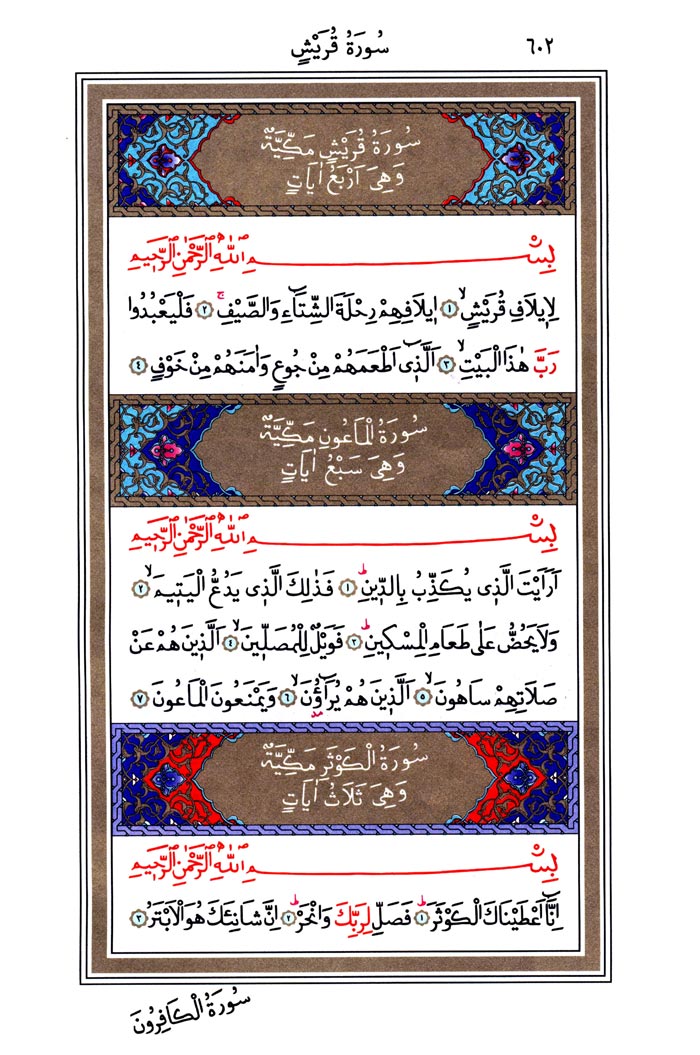 سُورَةُ قُرَيْشٍ ٦٠٢
سُورَةُ قُرَيْشٍ مَكِّيَّةٌ
وَهِىَ اَرْبَعُ اٰيَاتٍ
بِسْمِ اللّٰهِ الرَّحْمٰنِ الرَّحٖيمِ
لِاٖيلَافِ قُرَيْشٍۙ ﴿١﴾ اٖيلَافِهِمْ رِحْلَةَ الشِّتَٓاءِ وَالصَّيْفِۚ ﴿٢﴾ فَلْيَعْبُدُوا
رَبَّ هٰذَا الْبَيْتِۙ ﴿٣﴾ اَلَّذٖٓى اَطْعَمَهُمْ مِنْ جُوعٍ وَاٰمَنَهُمْ مِنْ خَوْفٍ ﴿٤﴾
سُورَةُ الْمَاعُونِ مَكِّيَّةٌ
وَهِىَ سَبْعُ اٰيَاتٍ
بِسْمِ اللّٰهِ الرَّحْمٰنِ الرَّحٖيمِ
اَرَاَيْتَ الَّذٖى يُكَذِّبُ بِالدّٖينِؕ ﴿١﴾ فَذٰلِكَ الَّذٖى يَدُعُّ الْيَتٖيمَۙ ﴿٢﴾
وَلَا يَحُضُّ عَلٰى طَعَامِ الْمِسْكٖينِؕ ﴿٣﴾ فَوَيْلٌ لِلْمُصَلّٖينَۙ ﴿٤﴾ اَلَّذٖينَ هُمْ عَنْ
صَلَاتِهِمْ سَاهُونَۙ ﴿٥﴾ اَلَّذٖينَ هُمْ يُرَٓاؤُ۫نَۙ ﴿٦﴾ وَيَمْنَعُونَ الْمَاعُونَ ﴿٧﴾
سُورَةُ الْكَوْثَرِ مَكِّيَّةٌ
وَهِىَ ثَلَاثُ اٰيَاتٍ
بِسْمِ اللّٰهِ الرَّحْمٰنِ الرَّحٖيمِ
اِنَّٓا اَعْطَيْنَاكَ الْكَوْثَرَؕ ﴿١﴾ فَصَلِّ لِرَبِّكَ وَانْحَرْؕ ﴿٢﴾ اِنَّ شَانِئَكَ هُوَ الْاَبْتَرُ ﴿٣﴾
سُورَةُ الْكَافِرُونَ